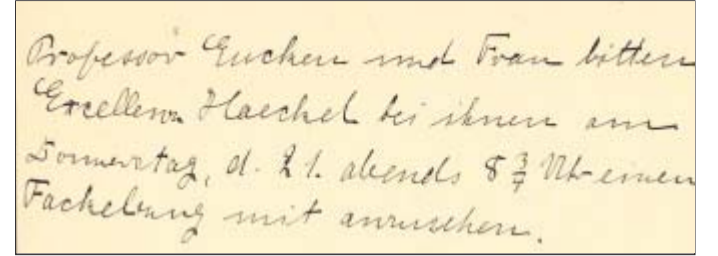 Professor Eucken und Frau bitten
Excellenz Haeckel bei ihnen am
Donnerstag, d. 21. abends 8 3/4 Uhr einen
Fackelzug mit anzusehen.